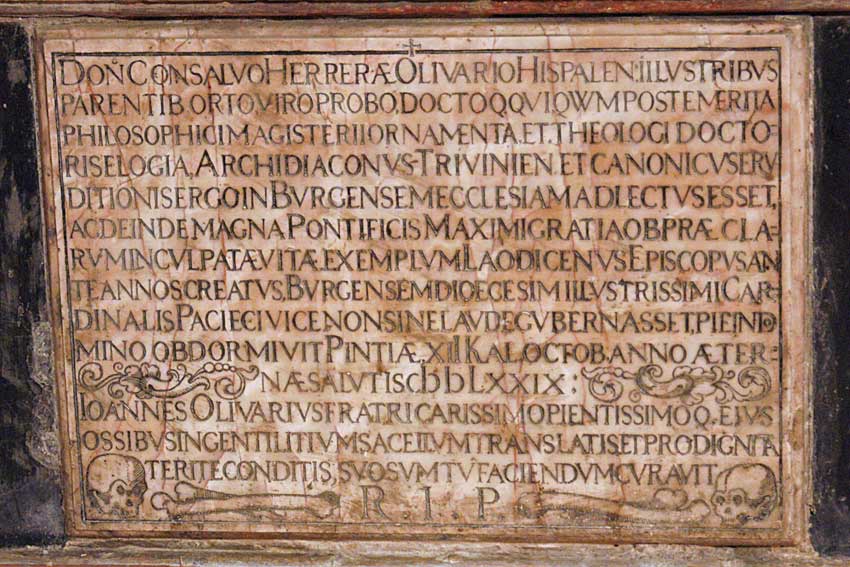 DON CONSALVO HERRERÆ OLIVARIO HISPALEN: ILLVSTRIBVS
PARENTIB. ORTO VIRO PROBO. DOCTOQ. QVI QVVM POST EMERITA
PHILOSOPHICI MAGISTERII ORNAMENTA, ET, THEOLOGI DOCTO-
RIS ELOGIA, ARCHIDIACONVS TRIVINIEN. ET CANONICVS ERV
DITIONIS ERGO IN BVRGENSEM ECCLESIAM ADLECTVS ESSET,
AC DEINDE MAGNA PONTIFICIS MAXIMI GRATIA OB PRÆCLA-
RVM INCVLPATÆ VITÆ EXEMPLVM LAODICENVS EPISCOPVS AN
TE ANNOS CREATVS, BVRGENSEM DIOECESIM ILLVSTRISSIMI CAR-
DINALIS PACIECI VICE NON SINE LAVDE GVBERNASSET, PIE IN DO
MINO OBDORMIVIT PINTIÆ. XIII KAL. OCTOB. ANNO ÆTER-
NÆ SALVTIS LXXIX:
IOANNES OLIVARIVS FRATRI CARISSIMO PIENTISSIMOQ. EIVS
OSSIBVS IN GENTILITIVM SACELLVM TRANSLATIS ET PRO DIGNITA
TE RITE CONDITIS, SVO SVMTV FACIENDVM CVRAVIT
R. I. P.